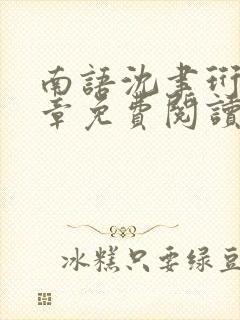 南語沈聿珩
章免費閱讀
冰糕只要綠豆